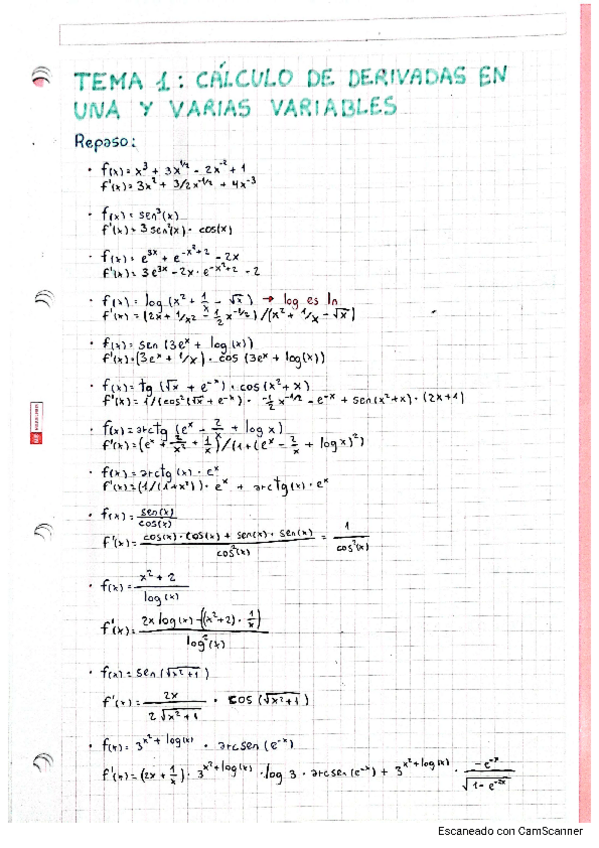 TEMA 1: CÁLCULO DE DERIVADAS EN
UNA Y VARIAS VARIABLES
Repaso:
· f(x) = x³ + 3x^1/2 - 2x^-2 + 1
f'(x) = 3x² + 3/2x^-1/2 + 4x^-3
· f(x) = sen³(x)
f'(x) = 3 sen²(x) · cos(x)
· f(x) = e^3x + e^-x²+2 - 2x
f'(x) = 3e^3x - 2x · e^-x²+2 - 2
· f(x) = log (x² + 1/x - √x) → log es ln
f'(x) = (2x + 1/x² - 1/2 x^-1/2) / (x² + 1/x - √x)
· f(x) = sen (3e^x + log(x))
f'(x) = (3e^x + 1/x) · cos (3e^x + log(x))
· f(x) = tg (√x + e^-x) · cos(x² + x)
f'(x) = 1/(cos²(√x + e^-x) · -1/2 x^-1/2 - e^-x + sen(x²+x) · (2x+1)
· f(x) = arctg (e^x - 2/x + log x)
f'(x) = (e^x + 2/x² + 1/x) / (1 + (e^x - 2/x + log x)²)
· f(x) = arctg (x) · e^x
f'(x) = (1/(1+x²)) · e^x + arctg(x) · e^x
· f(x) = sen(x)/cos(x)
f'(x) = cos(x) · cos(x) + sen(x) · sen(x) / cos²(x) = 1/cos²(x)
· f(x) = x² + 2 / log(x)
f'(x) = 2x log(x) - ((x²+2) · 1/x) / log²(x)
· f(x) = sen (√x²+1)
f'(x) = 2x / 2√x²+1 · cos (√x²+1)
· f(x) = 3^x² + log(x) · arcsen (e^-x)
f'(x) = (2x + 1/x) · 3^x²+log(x) · log 3 · arcsen (e^-x) + 3^x²+log(x) · -e^-x / √1 - e^-2x
Escaneado con CamScanner